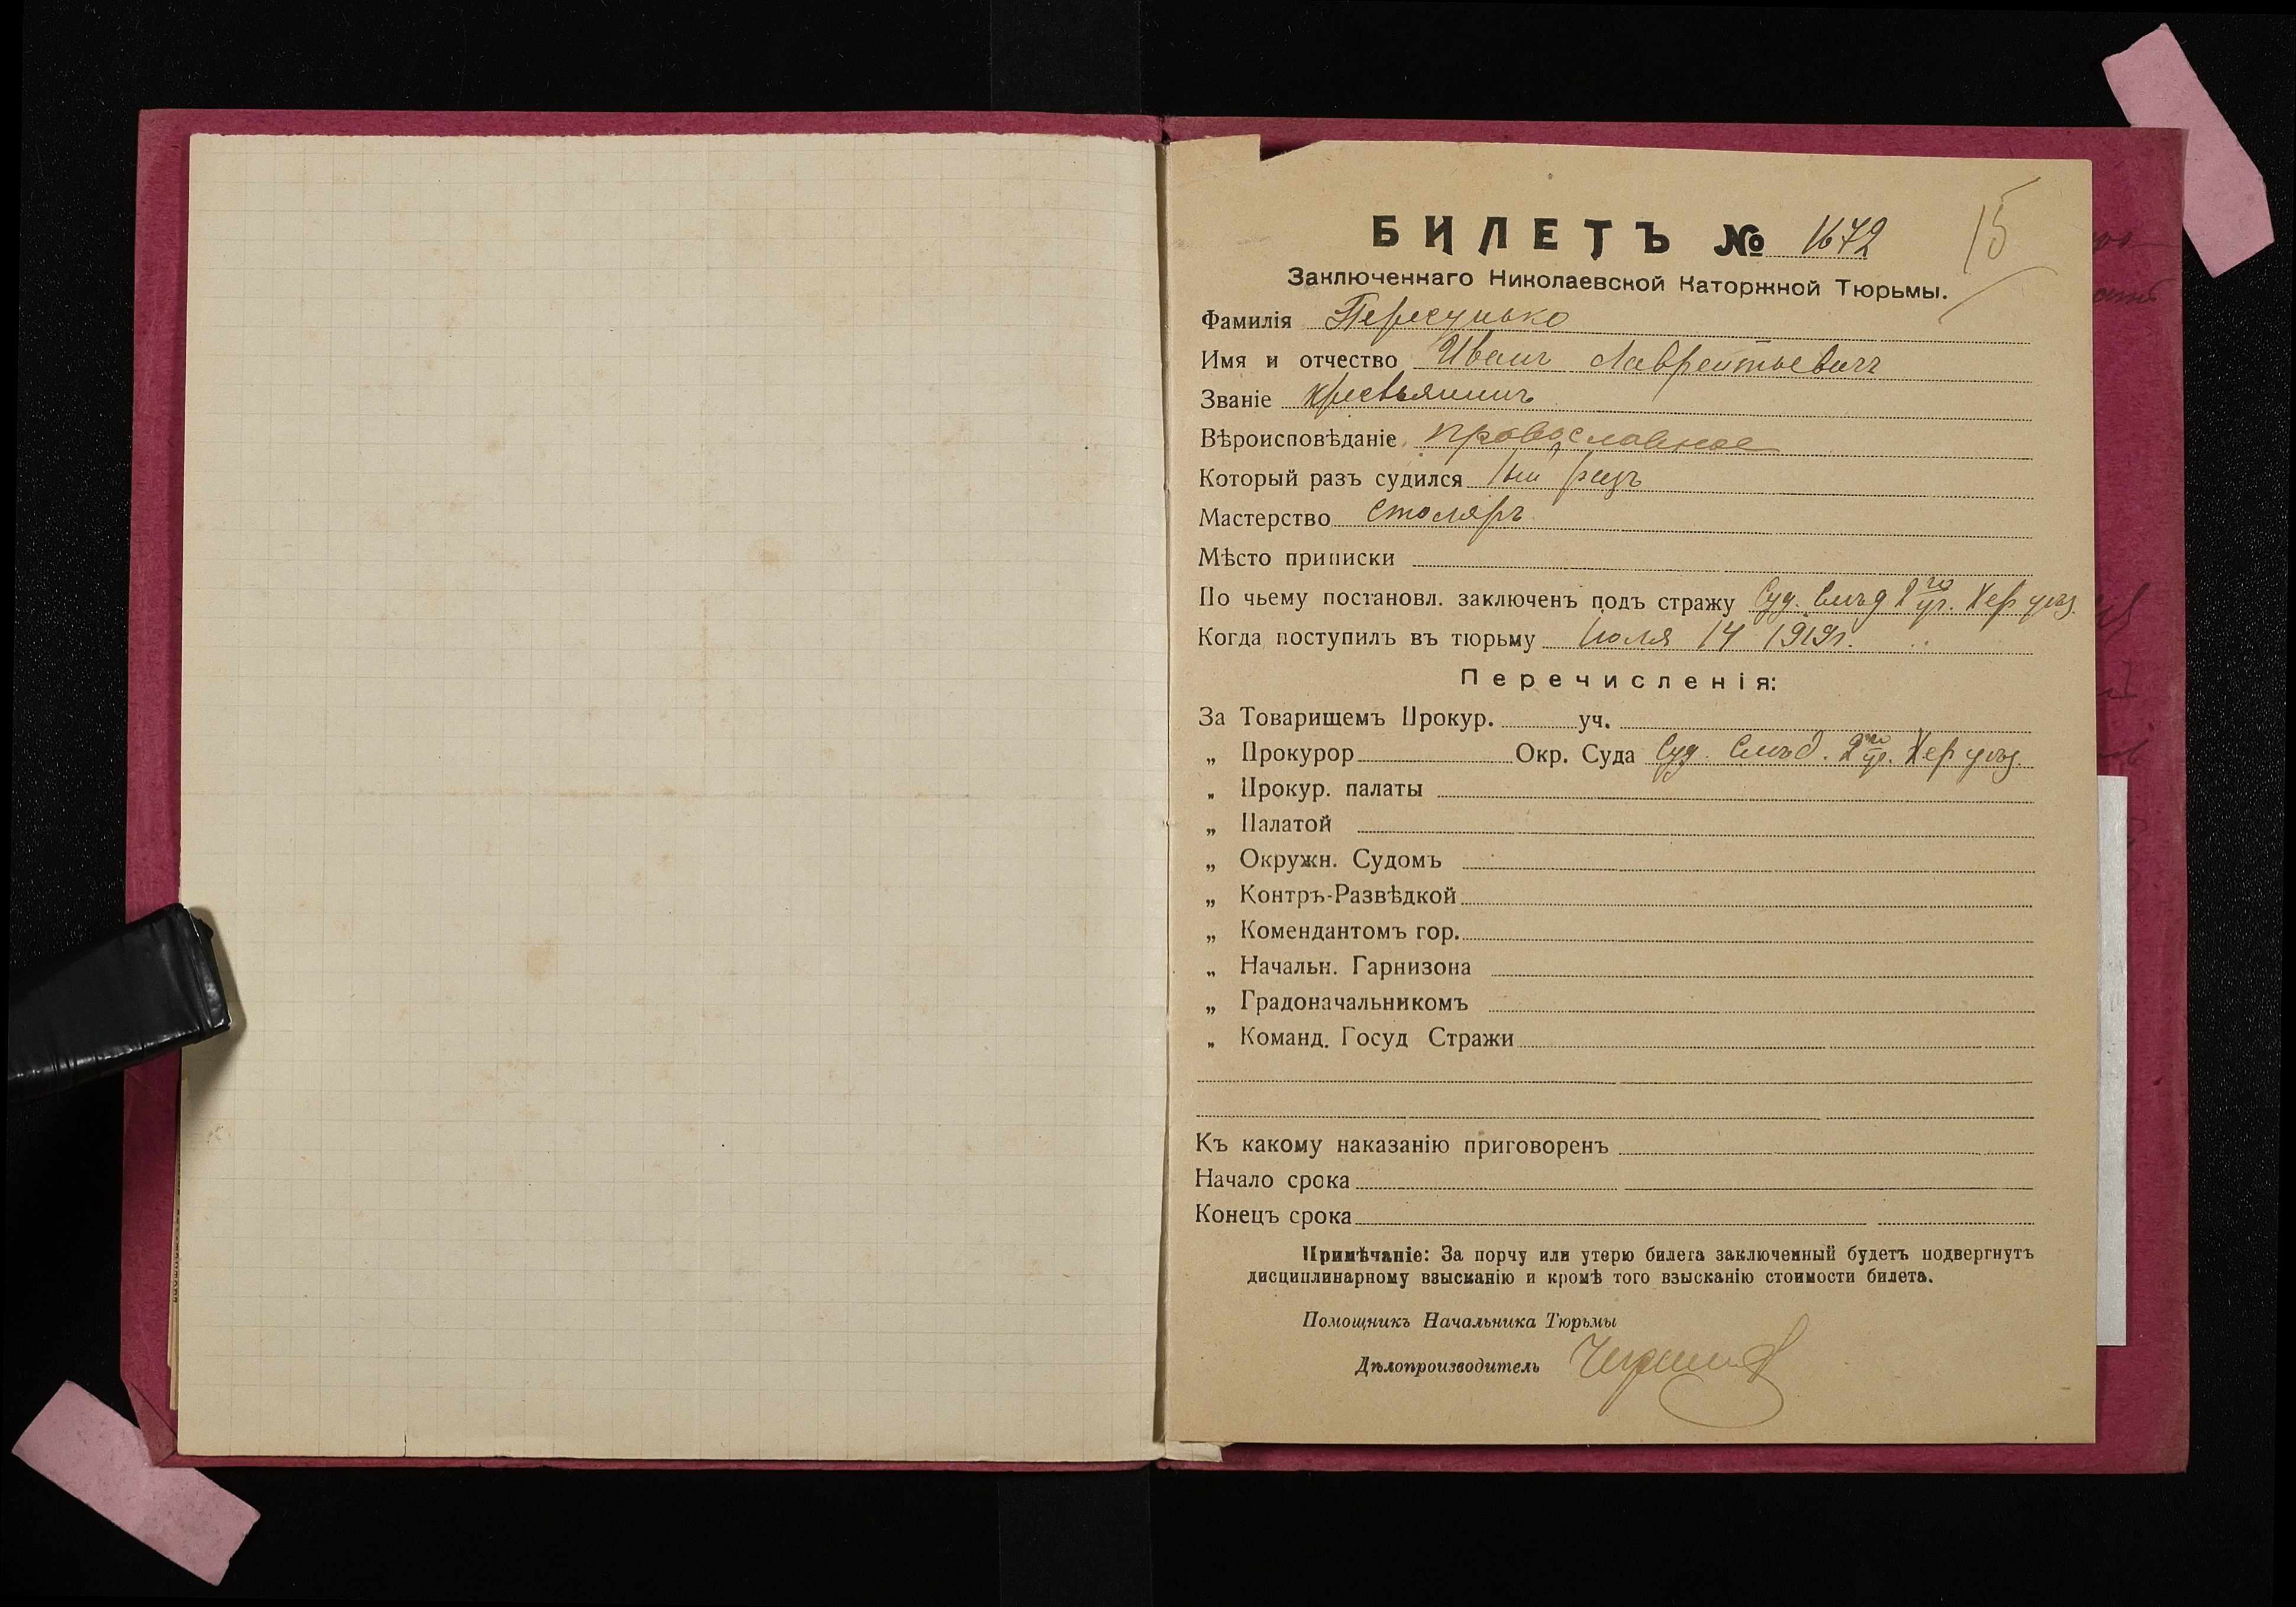 БИЛЕТЪ № 1672
15
Заключеннаго Николаевской Каторжной Тюрьмы.
Фамилія Пересунько
Имя и отчество Иванъ Лаврентьевичъ
Званіе крестьянинъ
Вѣроисповѣданіе православное
Который разъ судился 1ый разъ
Мастерство столяръ
Мѣсто приписки
По чьему постановл. заключенъ подъ стражу Суд. Слѣд 2го уч. Хер уѣз.
Когда поступилъ въ тюрьму Іюля 14 1919г.
Перечисленія:
За Товарищемъ Прокур. уч.
„ Прокурор Окр. Суда Суд. Слѣд. 2го уч. Хер уѣз.
„ Прокур. палаты
„ Палатой
„ Окружн. Судомъ
„ Контръ-Развѣдкой
„ Комендантомъ гор.
„ Начальн. Гарнизона
„ Градоначальникомъ
„ Команд. Госуд Стражи
Къ какому наказанію приговоренъ
Начало срока
Конецъ срока
Примѣчаніе: За порчу или утерю билета заключенный будетъ подвергнутъ
дисциплинарному взысканію и кромѣ того взысканію стоимости билета.
Помощникъ Начальника Тюрьмы
Дѣлопроизводитель